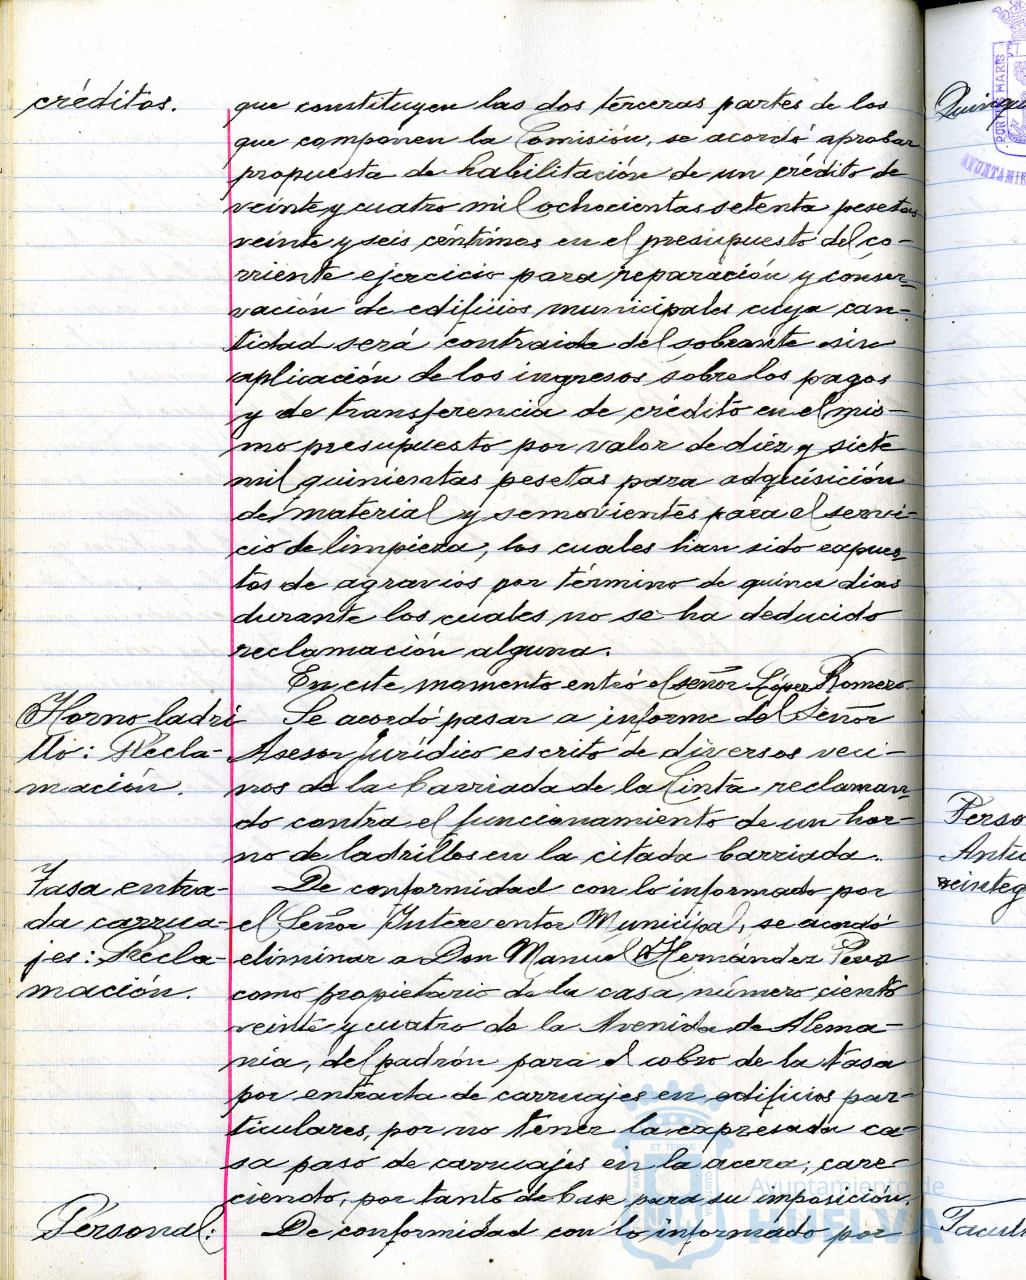 créditos. que constituyen las dos terceras partes de los
que componen la Comisión, se acordó aprobar
propuesta de habilitación de un crédito de
veinte y cuatro mil ochocientas setenta pesetas
veinte y seis céntimos en el presupuesto del co-
rriente ejercicio para reparación y conser-
vación de edificios municipales cuya can-
tidad será contraida del sobrante sin
aplicación de los ingresos sobre los pagos
y de transferencia de crédito en el mis-
mo presupuesto por valor de diez y siete
mil quinientas pesetas para adquisición
de material y semovientes para el servi-
cio de limpieza, los cuales han sido expues-
tos de agravios por término de quince dias
durante los cuales no se ha deducido
reclamación alguna.
En este momento entró el señor López Romero.
Horno ladri Se acordó pasar a informe del Señor
llo: Recla- Asesor Jurídico escrito de diversos veci-
mación. nos de la barriada de la Cinta reclaman-
do contra el funcionamiento de un hor-
no de ladrillos en la citada barriada.
Tasa entra- De conformidad con lo informado por
da carrua- el Señor Interventor Municipal, se acordó
jes: Recla- eliminar a Don Manuel Hernández
mación. como propietario de la casa número ciento
veinte y cuatro de la Avenida de Alema-
nia, del padrón para el cobro de la tasa
por entrada de carruajes en edificios par-
ticulares, por no tener la expresada ca-
sa paso de carruajes en la acera, care-
ciendo, por tanto de base para su imposición.
Personal: De conformidad con lo informado por
Ayuntamiento de
HUELVA
PORTUS MARIS
Perso
reinteg